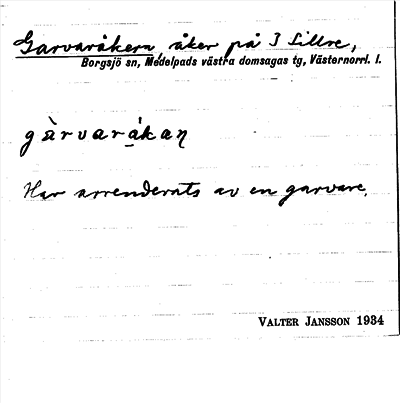 Garvaråkern, åker på 3 Lillre,
Borgsjö sn, Medelpads västra domsagas tg, Västernorrl. l.
gàrvaråkaɳ
Har arrenderats av en garvare.
VALTER JANSSON 1934